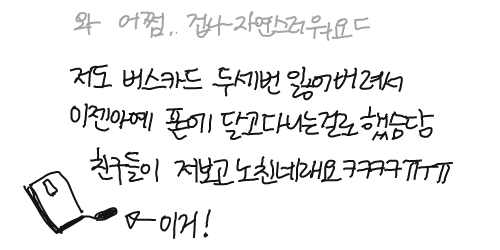 와 어쩜.. 겁나 자연스러워요ㄷ
저도 버스카드 두세번 잃어버려서
이젠아예 폰에 달고다니는걸로 했슴당
친구들이 저보고 노친네래요ㅋㅋㅋㅋㅠㅜㅠ
이거!